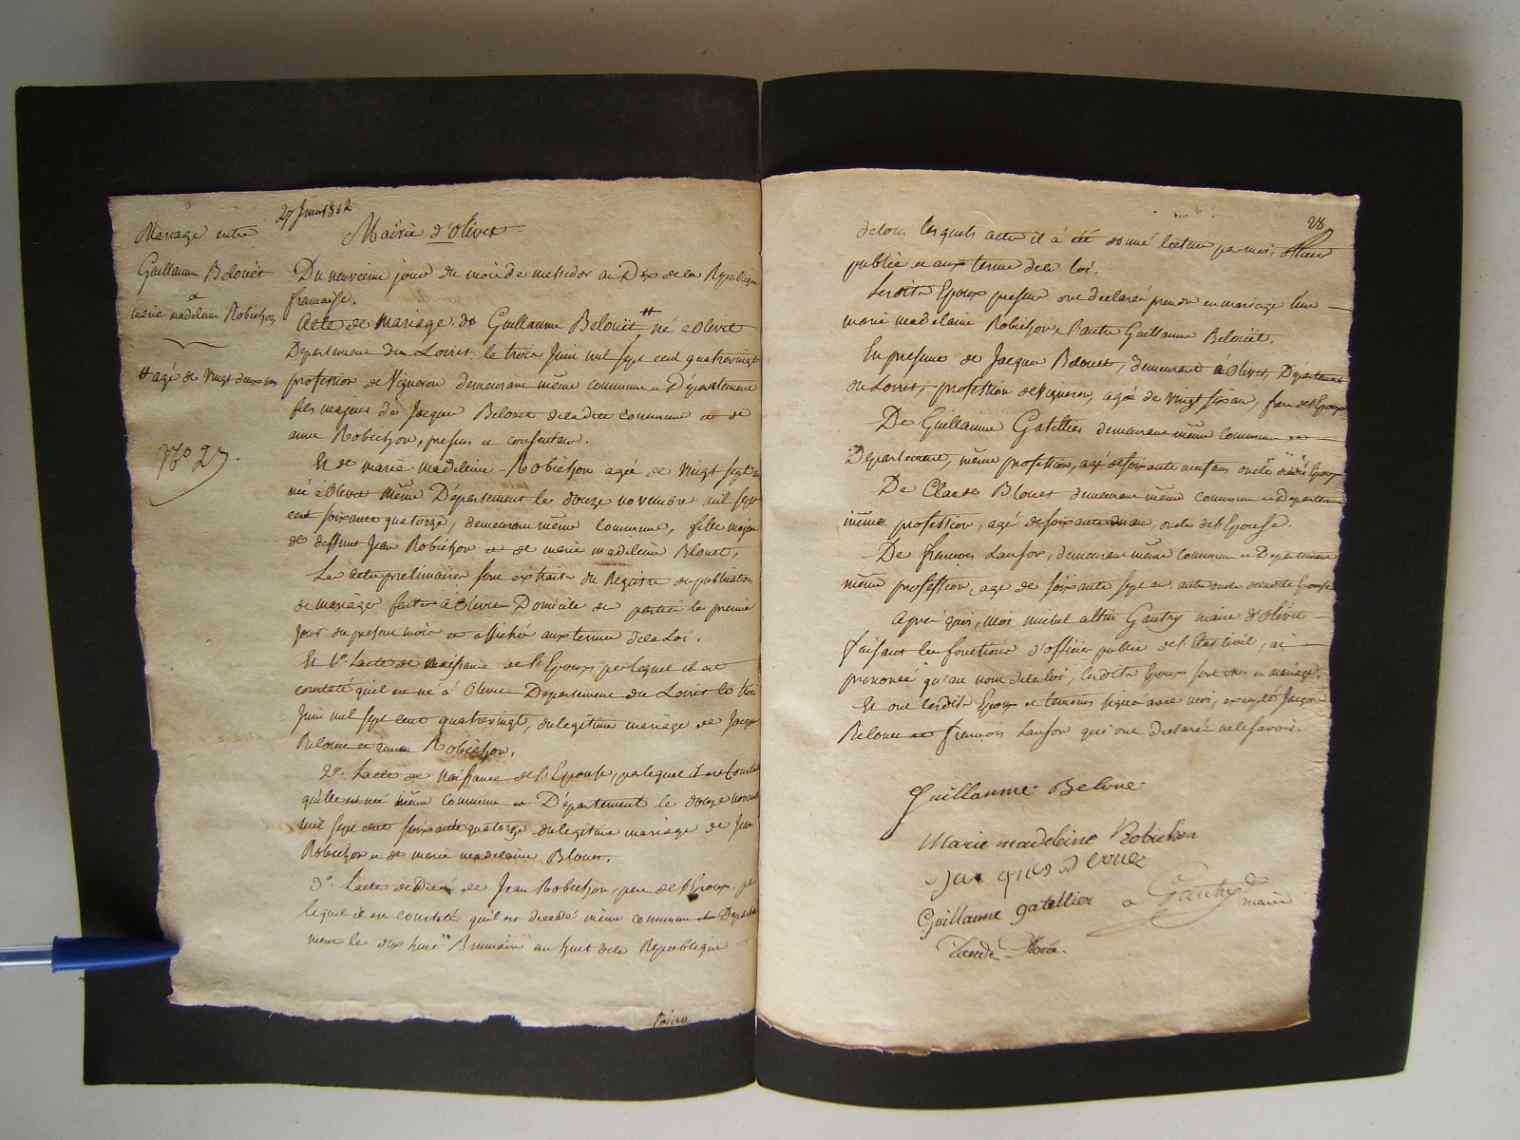 Mariage entre
Guillaume Belouët
et
marie madelaine Robichon
# agé de vingt deux ans
No 27.
Mairie d'olivet
Du neuvieme jour du mois de messidor an Dix de la Republique
francaise.
Acte de Mariage de Guillaume Belouët # né a Olivet
Departement du Loiret le trois Juin mil sept cent quatrevingt
profession de Vigneron demeurant même commune et Département
fils majeur de Jacque Belouet de ladite commune et de
anne Robichon, presens et consentans.
Et de marie madeleine Robichon agée de vingt sept ans
née a Olivet même Département le douze novembre mil sept
cent soixante quatorze, demeurant même commune, fille majeure
de deffunt Jean Robichon et de marie madelaine Blouet,
Les actes preliminaires sont extraits du Registre de publication
de mariage faites a Olivet Domicile des parties le premier
jour du present mois et affiché aux termes de la Loi.
Et 1º. l'acte de Naissance de l'Epoux, par lequel il est
constaté qu'il est né a Olivet Departement du Loiret le trois
Juin mil sept cent quatrevingt, du legitime mariage de Jacque
Belouet et anne Robichon.
2º. L'acte de Naissance de l'Epouse, par lequel il est constaté
qu'elle est née même commune et Département le douze novembre
mil sept cent soixante quatorze du legitime mariage de Jean
Robichon et de marie madelaine Blouet.
3º. L'acte de Décès de Jean Robichon, pere de l'Epouse, par
lequel il est constaté qu'il est decedé même commune et Departe
ment le dix huit Brumaire an huit de la Republique
28
de tous lesquels actes il a été donné lecture par moi officier
public et aux termes de la loi.
Lesdits Epoux presens ont declaré prendre en mariage l'un
marie madelaine Robichon, l'autre Guillaume Belouët.
En presence de Jacque Belouet, demeurant a Olivet, Departement
du Loiret, profession de Vigneron, agé de vingt six ans, frere de l'Epoux
De Guillaume Gatellier demeurant même commune et
Departement, même profession, agé de soixante ans oncle Epoux
De Claude Blouet demeurant même commune et departement
même profession, agé de soixante un ans oncle de l'Epouse.
De françois Lanson, demeurant même commune et Departement
même profession, agé de soixante sept ans oncle de ladite Epouse
Après quoi, Moi michel Gautry maire d'olivet
faisant les fonctions d'officier public de l'Etat civil, ai
prononcé qu'au nom de la loi, lesdits Epoux sont unis en mariage.
Et ont lesdits Epoux et temoins signé avec moi, excepté Jacque
Belouet et françois Lanson qui ont declaré ne le savoir.
Guillaume Beloue
Marie madeleine Robichon
Jacques
Guillaume gatellier Gautry
maire